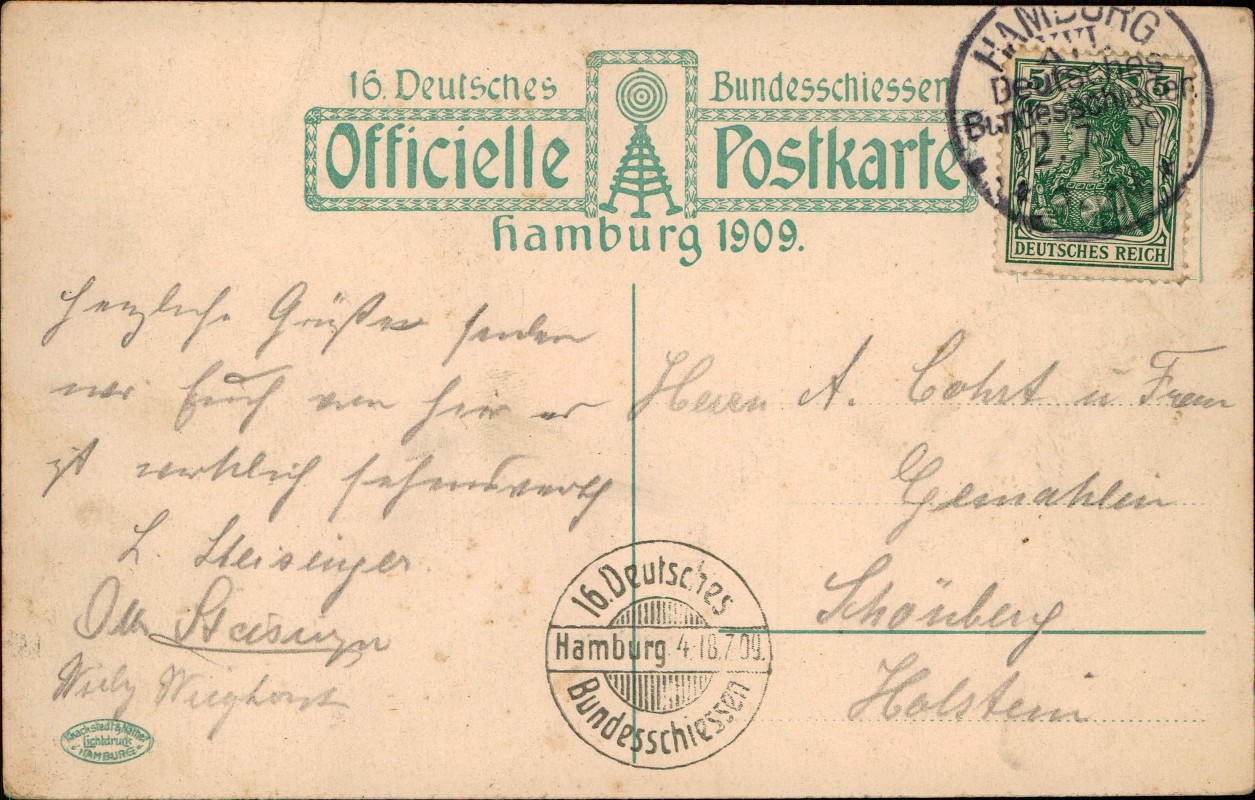 16. Deutsches Bundesschiessen
Officielle Postkarte
Hamburg 1909.
HAMBURG
XVI.
Deutsches
Bundesschießen
12.7.09
5 5
DEUTSCHES REICH
Herzliche Grüße senden
wir Euch von hier es
ist wirklich sehenswerth
L. Steisinger
Otto
Willy Wieghorst
Herrn A. Cohrt u Frau
Gemahlin
Schönberg
Holstein
16. Deutsches
Hamburg 4-18.7.09.
Bundesschiessen
Knackstedt & Näther
Lichtdruck
HAMBURG